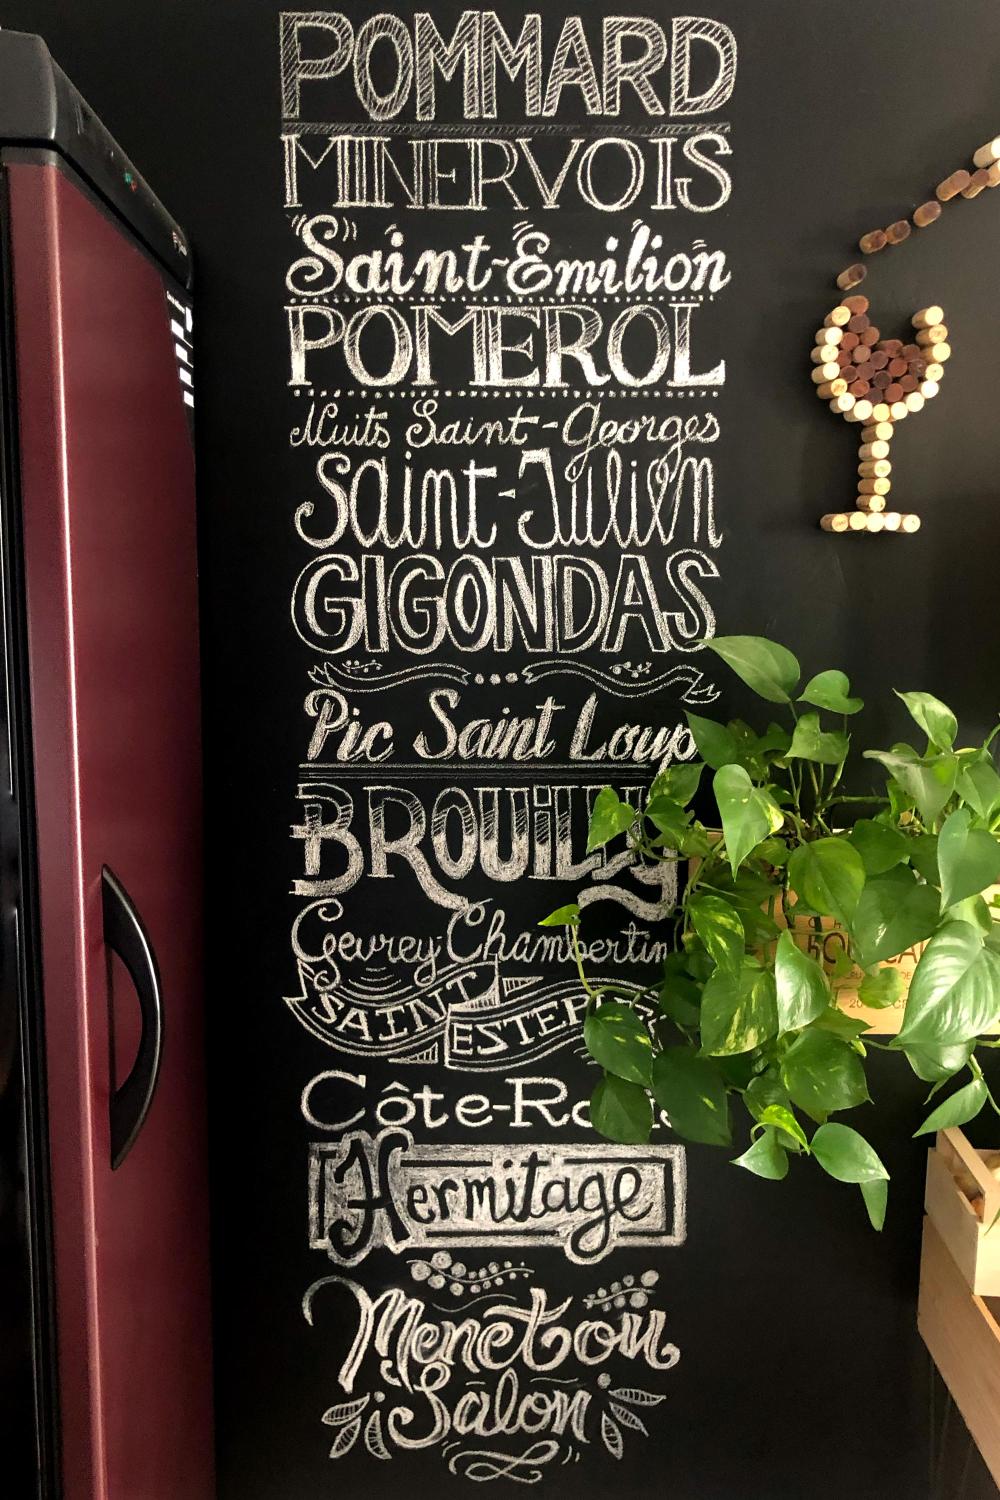 POMMARD
MINERVOIS
Saint-Emilion
POMEROL
Nuits Saint-Georges
Saint-Julien
GIGONDAS
Pic Saint Loup
BROUILLY
Gevrey Chambertin
SAINT
ESTEP
Côte-Ro
Hermitage
Menetou
Salon